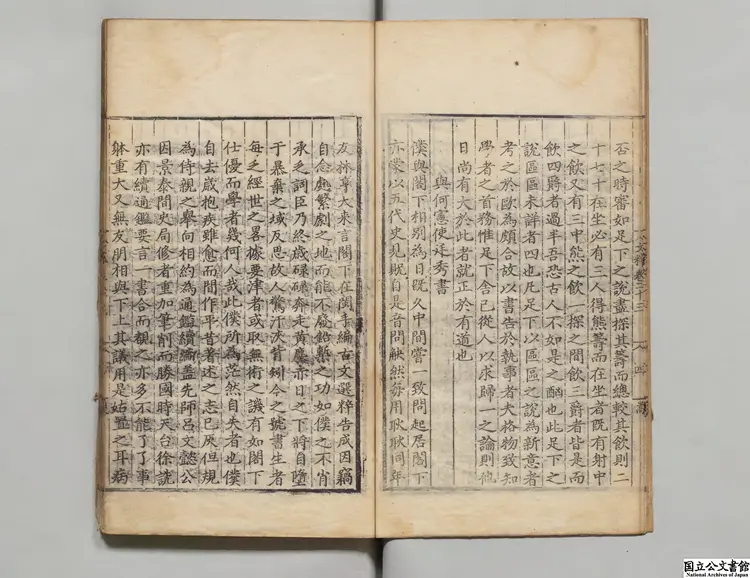 否之時審如足下之說盡探其籌而總較其飲則二
十七十在坐必有三人得熊籌而在坐者既有射中
之飲又有三中熊之飲一探之間飲三爵者皆是而
飲四爵者過半吾恐古人不如是之酗也此足下之
說區區未詳者四也凡足下以區區之說為新意者
考之於歐為頗合故以書告於執事者夫格物致知
學者之首務惟足下舍已從人以求歸一之論則他
日尚有大於此者就正於有道也
與何憲使廷秀書
僕與閣下相別為日既久中間嘗一致問起居閣下
亦蒙以五代史見貺自是音問缺然勞用耿耿同年
友林亨大來言閣下在閩手編古文選粹告成因竊
自念處繁劇之地而能不廢鉛槧之功如僕之不肖
承乏詞臣乃終歲碌碌奔走黃塵赤日之下將自墮
于暴棄之域反思故人驚汗浹背矧今之號書生者
每乏經世之畧據要津者或取無術之譏有如閣下
仕優而學者幾何人哉此僕所為茫然自失者也僕
自去歲抱疾雖愈而間作平昔著述之志已灰但規
為侍親之舉向相約為通鑑續編蓋先師呂文懿公
因景泰間史局修者重加筆削而勝國時天台徐詵
亦有續通鑑要言一書合而觀之亦多不能了了事
躰重大又無友朋相與下上其議用是姑置之耳病
国立公文書館
National Archives of Japan